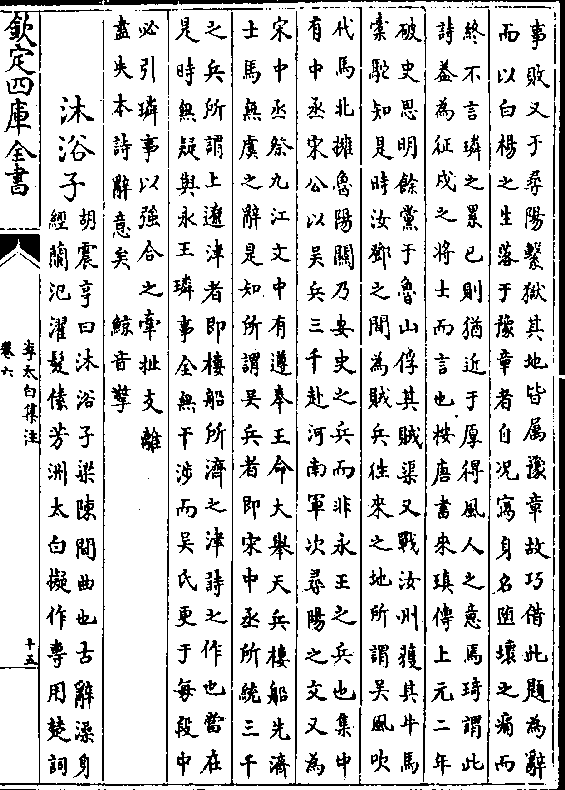 事敗又于尋陽繫獄其地皆屬豫章故巧借此題為辭
而以白楊之生落于豫章者自况寫身名堕壞之痛而
終不言璘之累已則猶近于厚得風人之意馬琦謂此
詩蓋為征戍之將士而言也按唐書來瑱傳上元二年
破史思明餘黨于魯山俘其賊渠又戰汝州獲其牛馬
橐駝知是時汝鄧之間為賊兵往來之地所謂吴風吹
代馬北擁魯陽關乃安史之兵而非永王之兵也集中
有中丞宋公以吴兵三千赴河南軍次尋陽之文又為
宋中丞祭九江文中有遵奉王命大舉天兵樓船先濟
士馬無虞之辭是知所謂吴兵者即宋中丞所統三千
之兵所謂上遼津者即樓船所濟之津詩之作也當在
是時無疑與永王璘事全無干涉而吴氏更于每段中
必引璘事以強合之牽扯支離
盡失本詩辭意矣　鯨音擎
沐浴子
胡震亨曰沐浴子梁陳間曲也古辭澡身
經蘭汜濯髮傃芳洲太白擬作專用楚詞
欽定四庫全書
李太白集注
卷六
十五